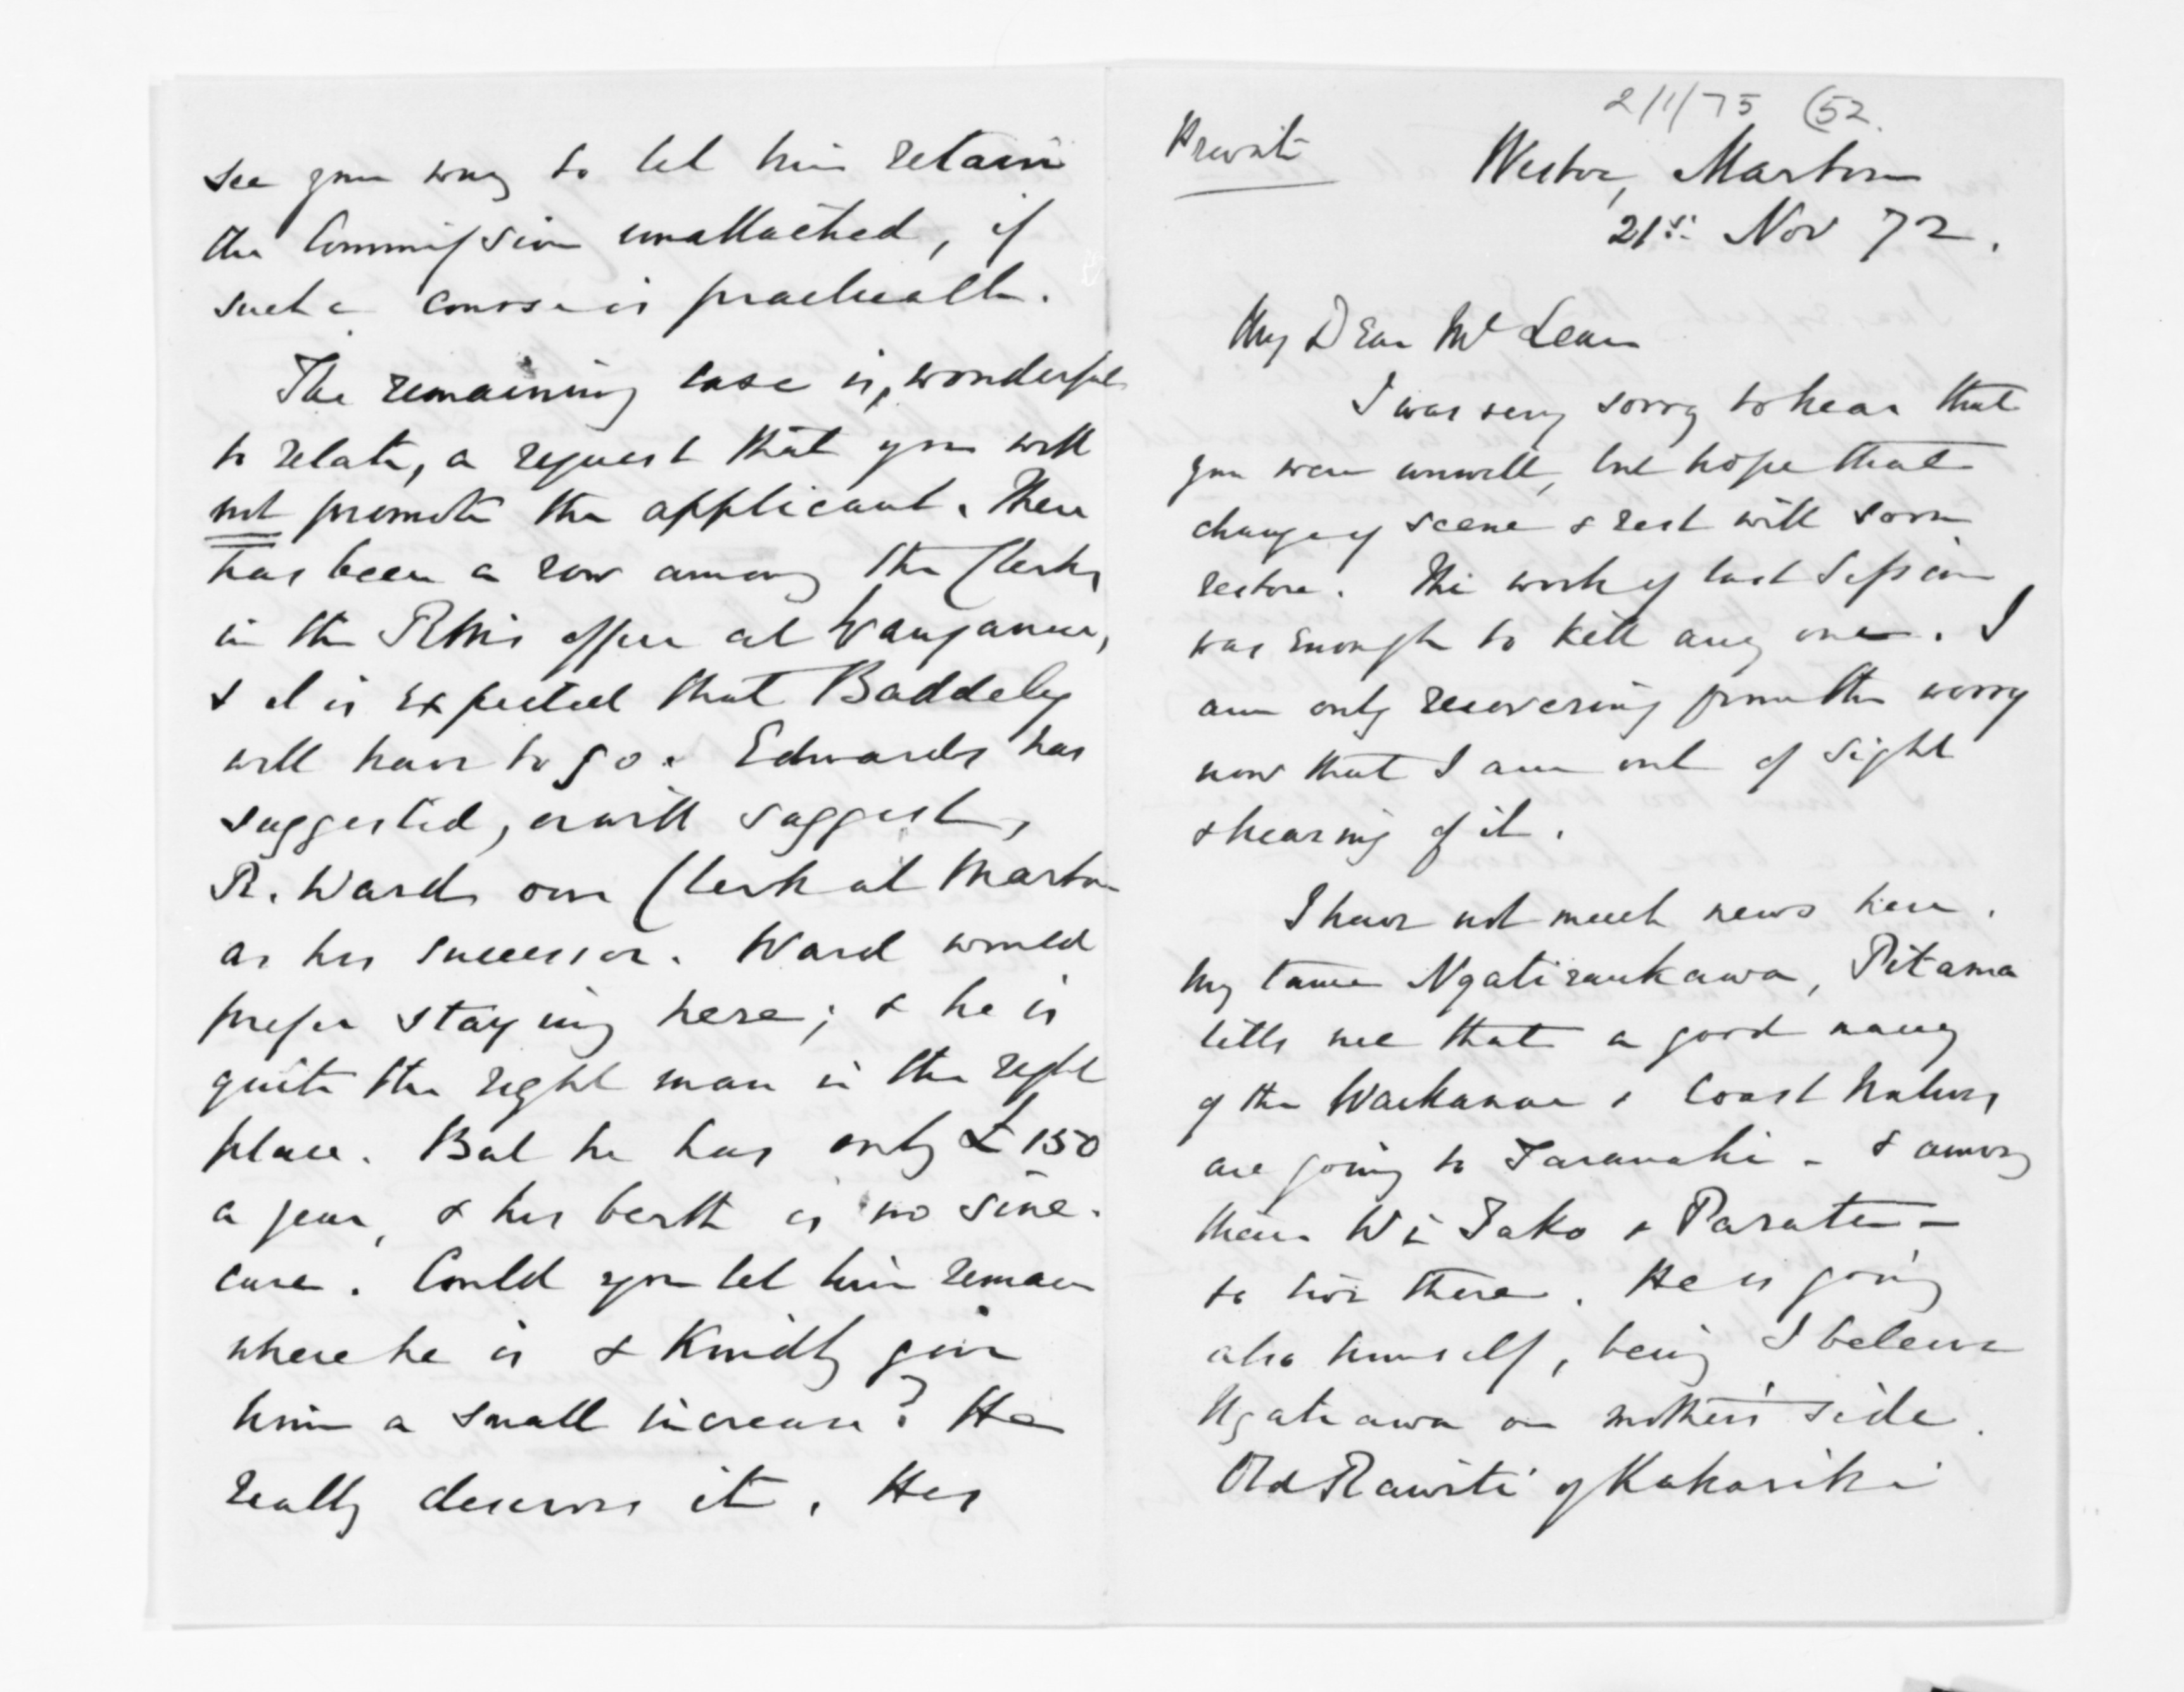 see your way to let him retain
the Commission unattached, if
such a course is practicable.
The remaining case is, wonderful
to relate, a request that you will
not promote the applicant. There
has been a row among the Clerks
in the RMs office at Wanganui,
& it is expected that Baddely
will have to go. Edwards has
suggested, or will suggest,
R. Ward, our Clerk at Marton
as his successor. Ward would
prefer staying here; & he is
quite the right man in the right
place. But he has only £150
a year, & his berth is no sine-
cure. Could you let him remain
where he is & kindly give
him a small increase? He
really deserves it. His
2/1/75 (52.
Private
Westoe, Marton
21st Nov 72.
My Dear McLean
I was very sorry to hear that
you were unwell, but hope that
change of scene & rest will soon
restore. The work of last Session
was enough to kill any one. I
am only recovering from the worry
now that I am out of sight
& hearing of it.
I have not much news here.
My tame Ngatiraukawa, Pitama
tells me that a good many
of the Waikanae & Coast Natives
are going to Taranaki - & among
them Wi Tako & Parata -
to live there. He is going
also himself, being I believe
Ngatiawa on mother's side.
Old Rawiti of Kakariki